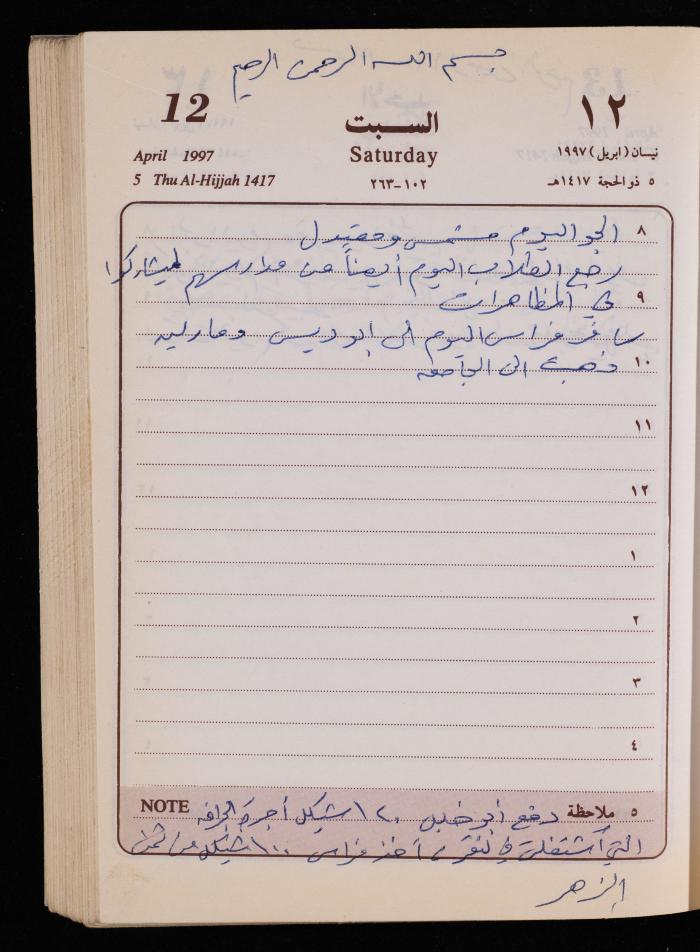 بسم الله الرحمن الرحيم
12 السبت ١٢
April 1997 Saturday نيسان (ابريل) ١٩٩٧
5 Thu Al-Hijjah 1417 ١٠٢-٢٦٣ ٥ ذو الحجة ١٤١٧هـ
٨ الجو اليوم مشمس ومعتدل
رجع الطلاب اليوم أيضاً من مدارسهم ليشاركوا
٩ في المظاهرات
سافر فراس اليوم الى ابو ديس ومارليه
١٠ ذهبت الى الجامعه
١١
١٢
١
٢
٣
٤
NOTE ٥ ملاحظة دفع ابو خليل ١٢٠ شيكل أجرة الجرافه
التي اشتغلت في أخذ فراس ١٠٠ شيكل من ثمن
الزهر